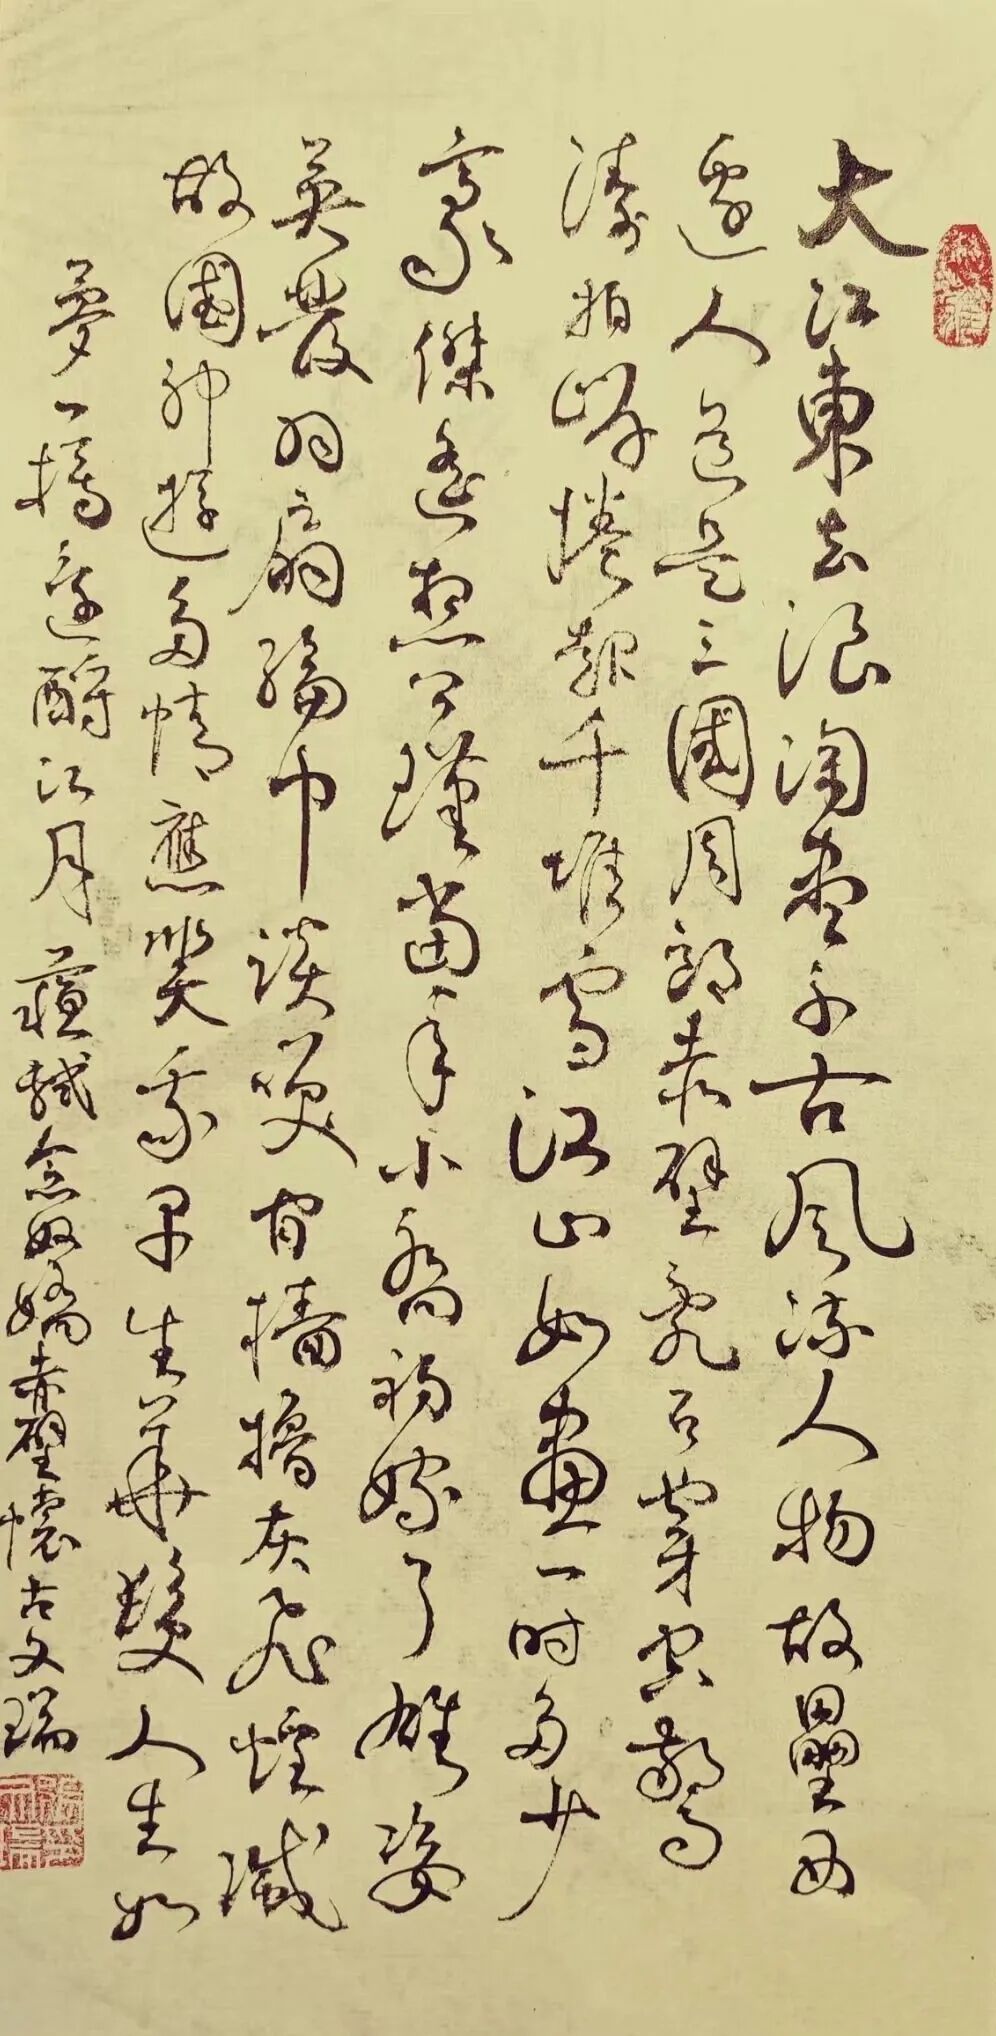 大江東去浪淘盡千古風流人物故壘西
邊人道是三國周郎赤壁亂石穿空驚
濤拍岸捲起千堆雪江山如畫一時多少
豪傑遙想公瑾當年小喬初嫁了雄姿
英發羽扇綸巾談笑間檣擼灰飛煙滅
故國神遊多情應笑我早生華髮人生如
夢一樽還酹江月蘇軾念奴嬌赤壁懷古文瑞